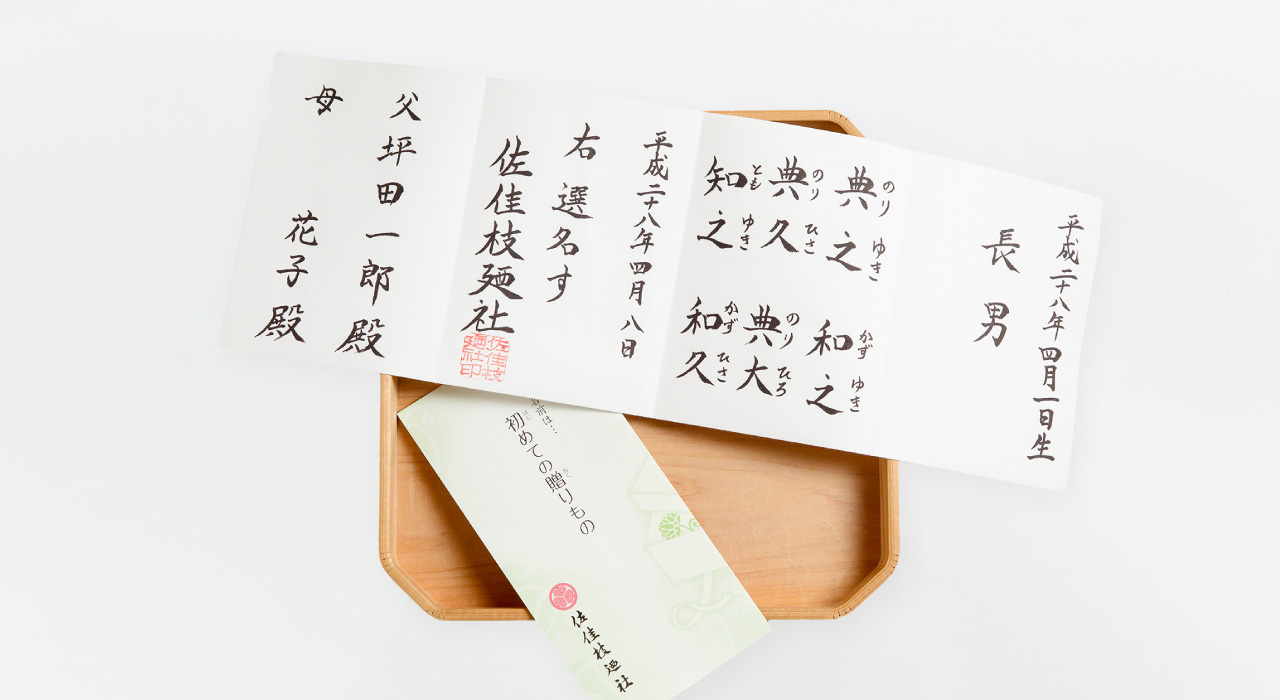 平成二十八年四月一日生
長男
典之
のりゆき
典久
のりひさ
知之
ともゆき
和之
かずゆき
典大
のりひろ
和久
かずひさ
平成二十八年四月八日
右選名す
佐佳枝廼社
佐佳枝廼社印
父 坪田一郎殿
母 花子殿
名前は…
初めての贈りもの
はじ おく
佐佳枝廼社